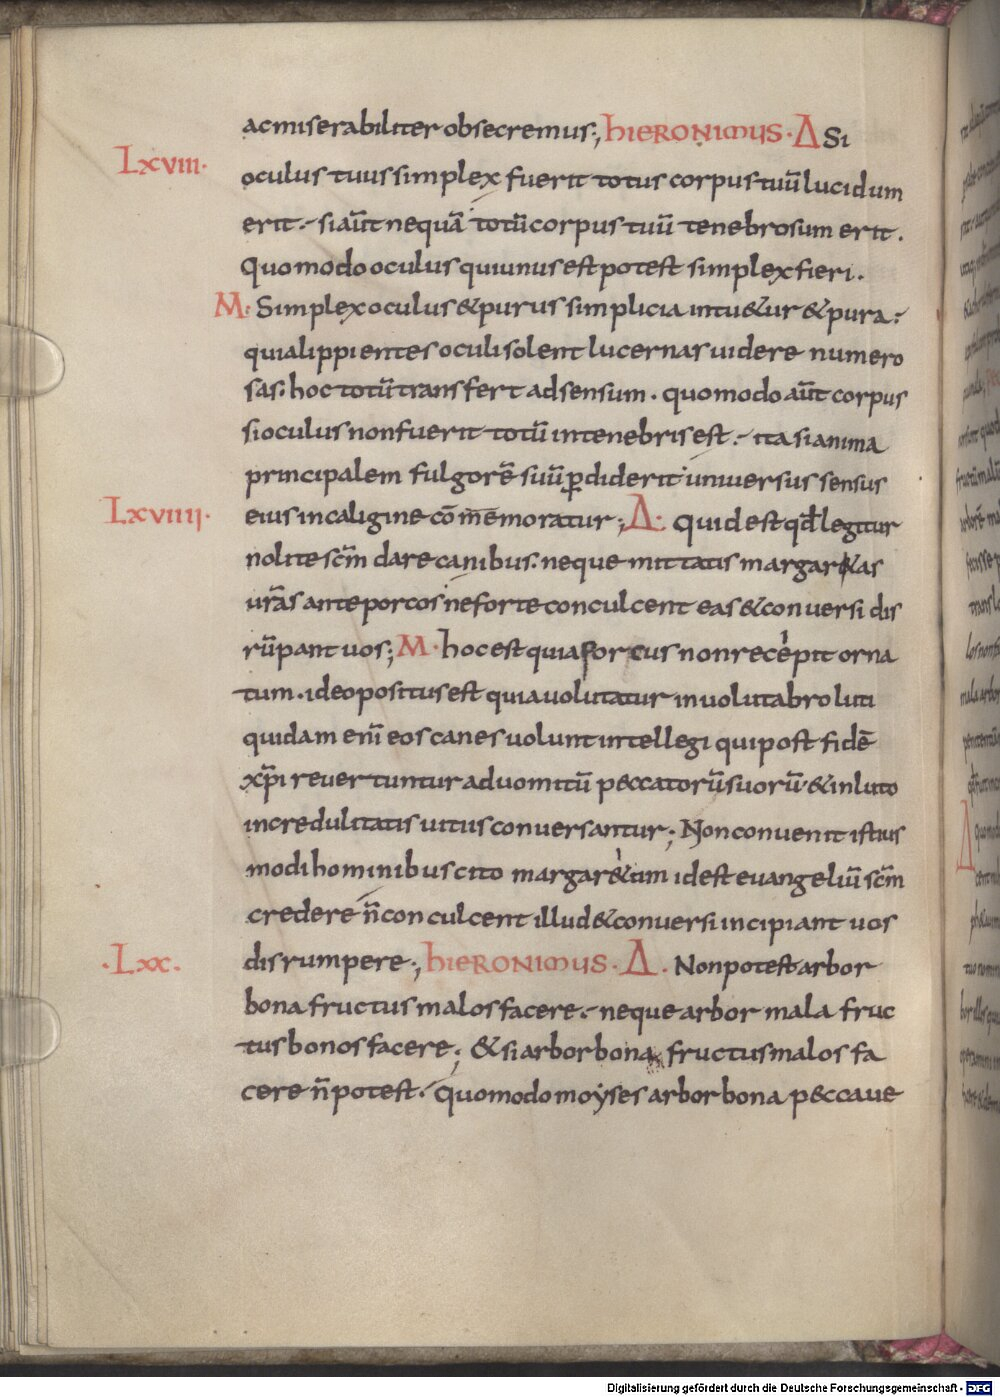 ac miserabiliter obsecremus; HIERONIMUS · Δ Si
LXVIII·
oculus tuus simplex fuerit totus corpus tuū lucidum
erit. si aūt nequā totū corpus tuū tenebrosum erit.
Quomodo oculus qui unus est potest simplex fieri.
M· Simplex oculus & purus simplicia intu&ur & pura.
quia lippientes oculi solent lucernas uidere numero
sas. hoc totū transfert ad sensum. quomodo aūt corpus
si oculus non fuerit totū in tenebris est. ita si anima
principalem fulgorē suū ꝑdiderit uniuersus sensus
LXVIIII·
eius in caligine cōmēmoratur; Δ· Quid est qđ legitur
nolite sc̄m dare canibus. neque mittatis margar&as
ur̄as ante porcos ne forte conculcent eas & conuersi dis
rūpant uos; M· hoc est quia porcus non recepit orna
tum. ideo positus est quia uolutatur in uolutabro luti
quidam enī eos canes uolunt intellegi qui post fidē
xp̄i reuertuntur ad uomitū peccatorū suorū & in luto
incredulitatis uitus conuersantur; Non conuenit istius
modi hominibus cito margar&um id est euangeliū sc̄m
credere n̄ conculcent illud & conuersi incipiant uos
·LXX·
disrumpere; HIERONIMUS · Δ · Non potest arbor
bona fructus malos facere. neque arbor mala fruc
tus bonos facere; & si arbor bona fructus malos fa
cere n̄ potest. quomodo moyses arbor bona peccaue
Digitalisierung gefördert durch die Deutsche Forschungsgemeinschaft - DFG